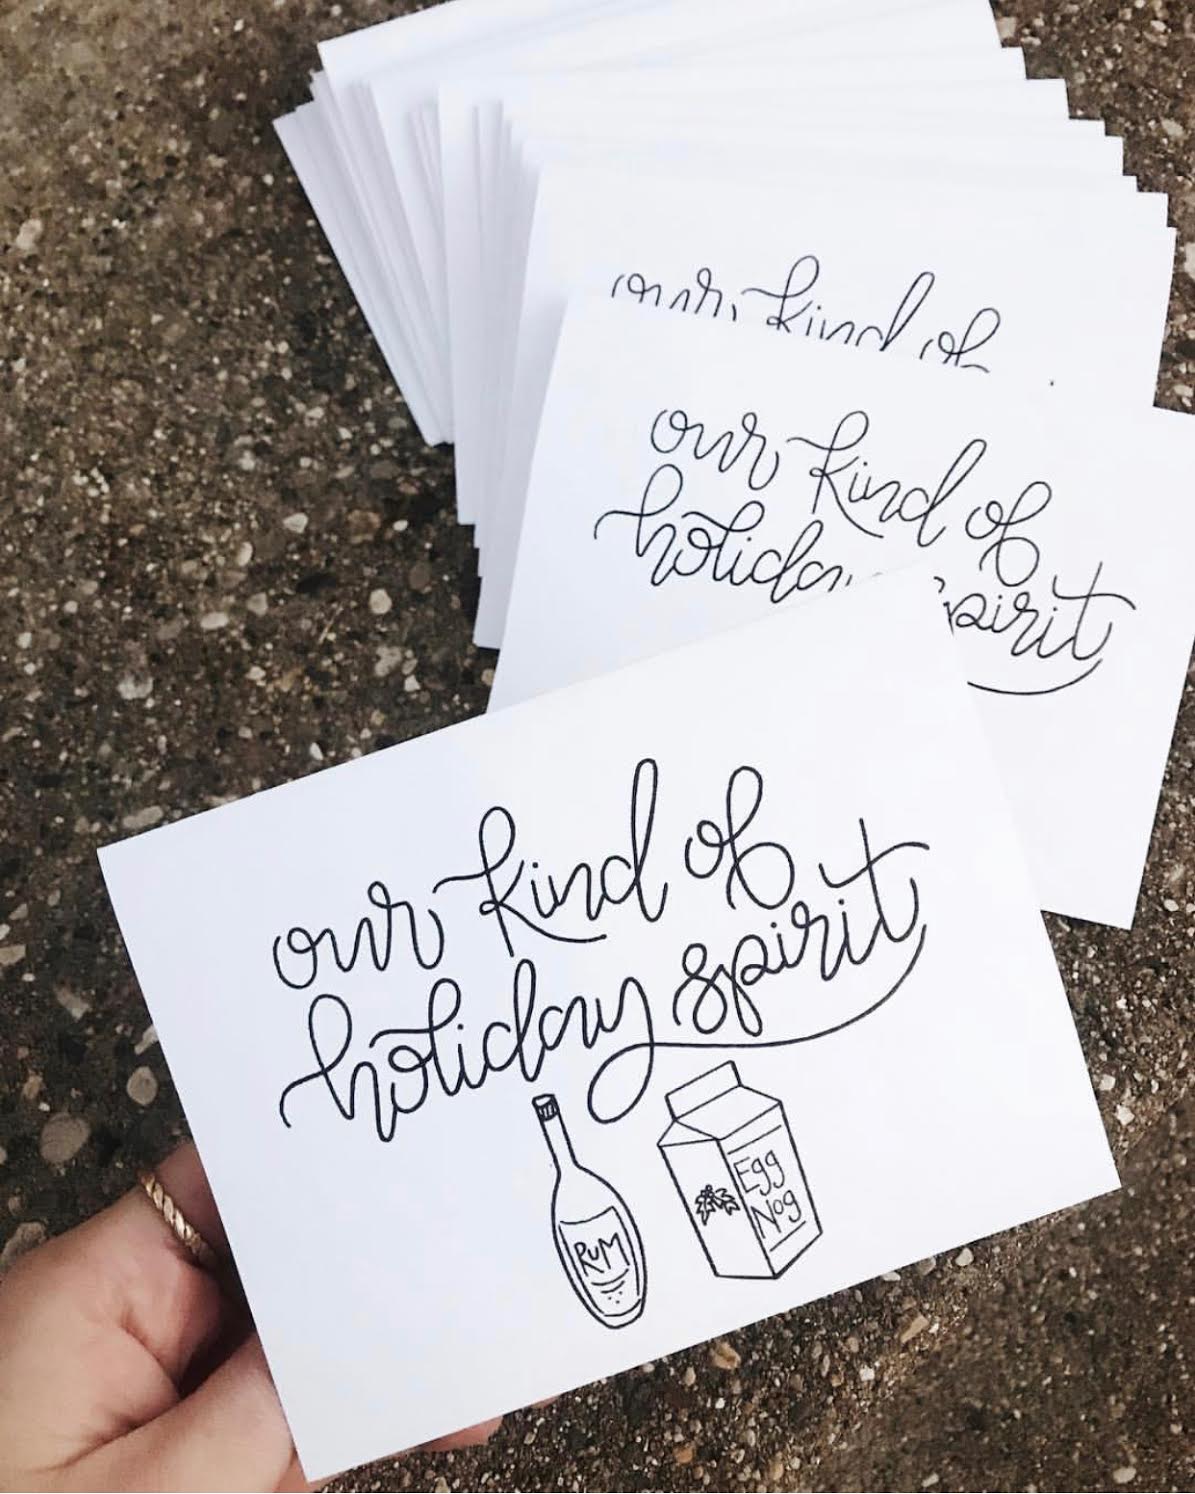 our kind of
our kind of
holiday
spirit
our kind of
holiday spirit
RUM
Egg
Nog